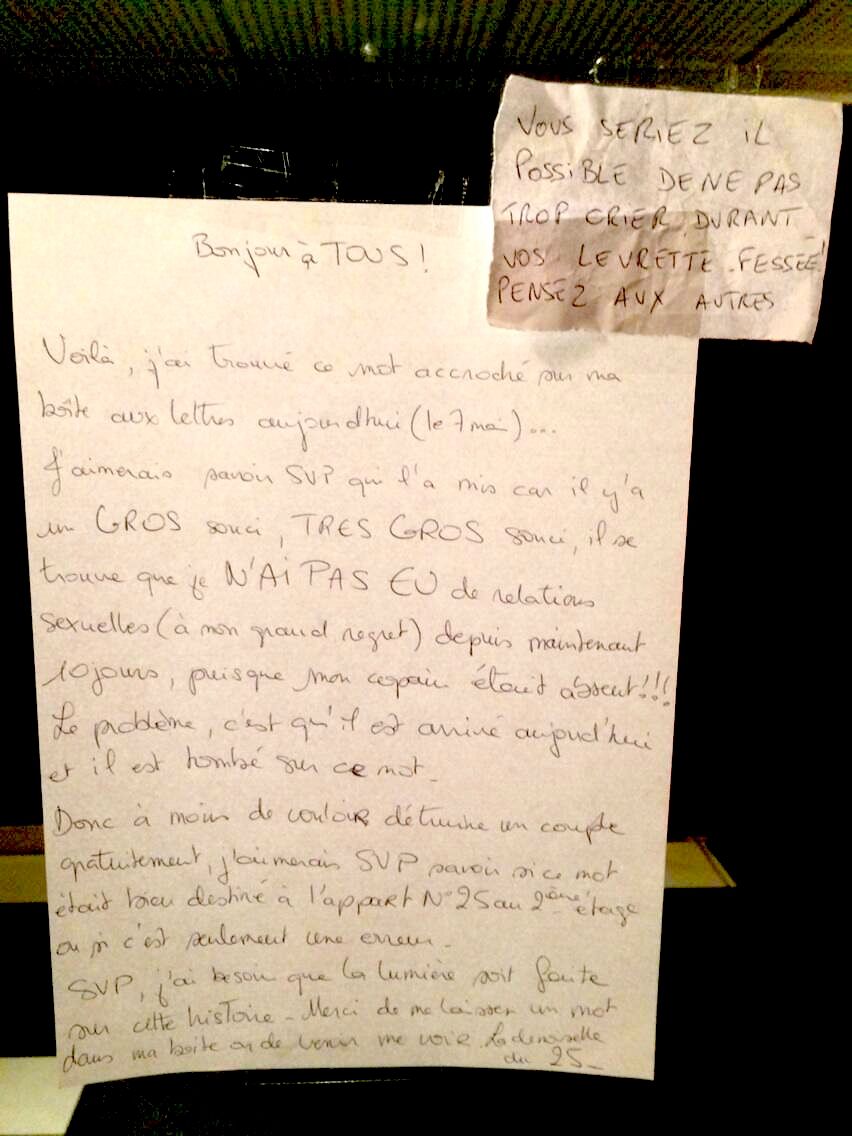 VOUS SERIEZ IL
POSSIBLE DE NE PAS
TROP CRIER DURANT
VOS LEVRETTE.FESSEE!
PENSEZ AUX AUTRES
Bonjour à TOUS !
Voilà, j'ai trouvé ce mot accroché sur ma
boîte aux lettres aujourd'hui (le 7 mai)...
J'aimerais savoir SVP qui l'a mis car il y'a
un GROS souci, TRES GROS souci, il se
trouve que je N'AI PAS EU de relations
sexuelles (à mon grand regret) depuis maintenant
10 jours, puisque mon copain était absent!!!
Le problème, c'est qu'il est arrivé aujourd'hui
et il est tombé sur ce mot.
Donc à moins de vouloir détruire un couple
gratuitement, j'aimerais SVP savoir si ce mot
était bien destiné à l'appart N°25 au 2ème étage
ou si c'est seulement une erreur.
SVP, j'ai besoin que la lumière soit faite
sur cette histoire - Merci de me laisser un mot
dans ma boîte ou de venir me voir. La demoiselle
du 25_